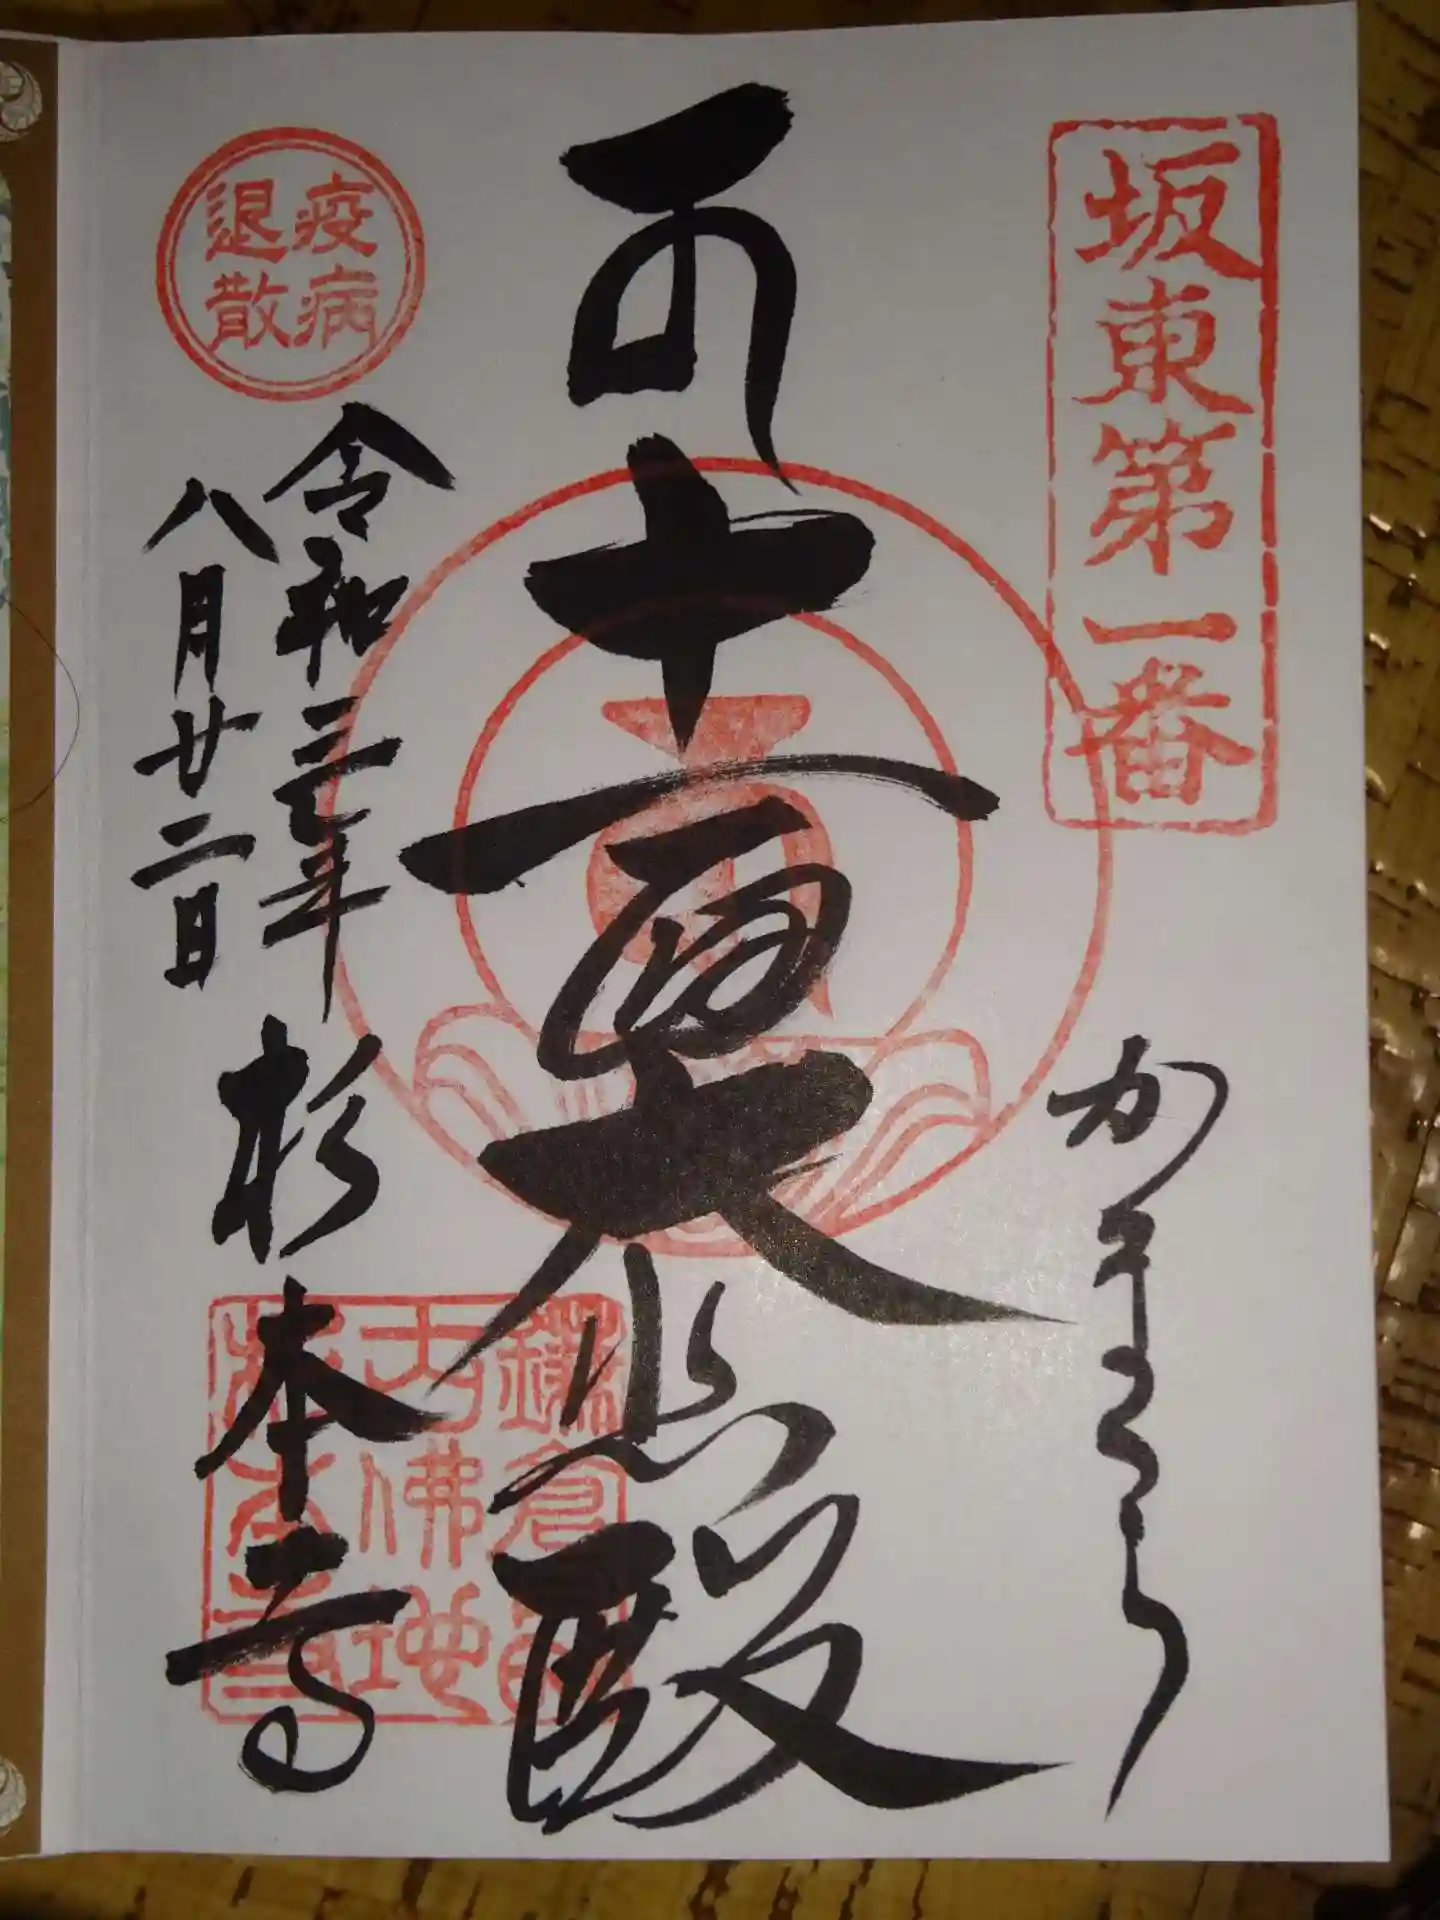 坂東第一番
かまくら
十一面大悲殿
疫病
退散
令和三年
八月廿二日
杉本寺
鎌倉最
古佛地
杉本寺